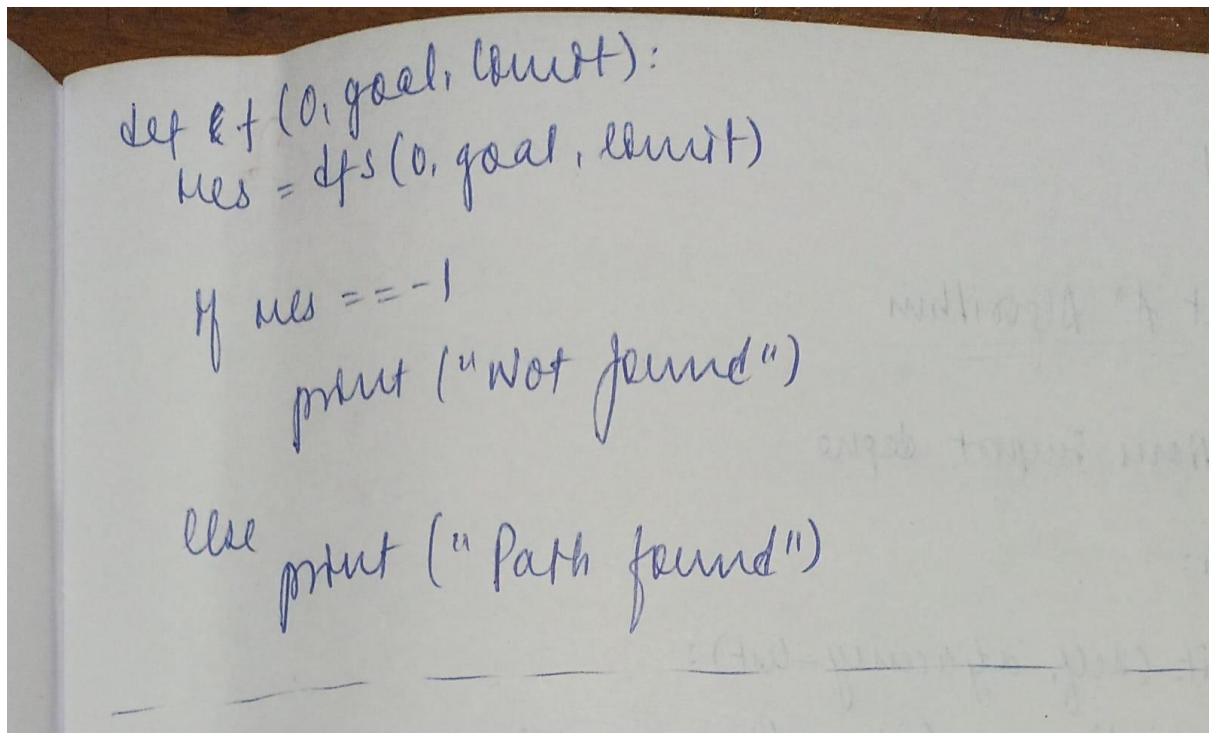 def (0, goal, limit):
res = dfs (0, goal, limit)
if res == -1
print ("Not found")
else
print ("Path found")